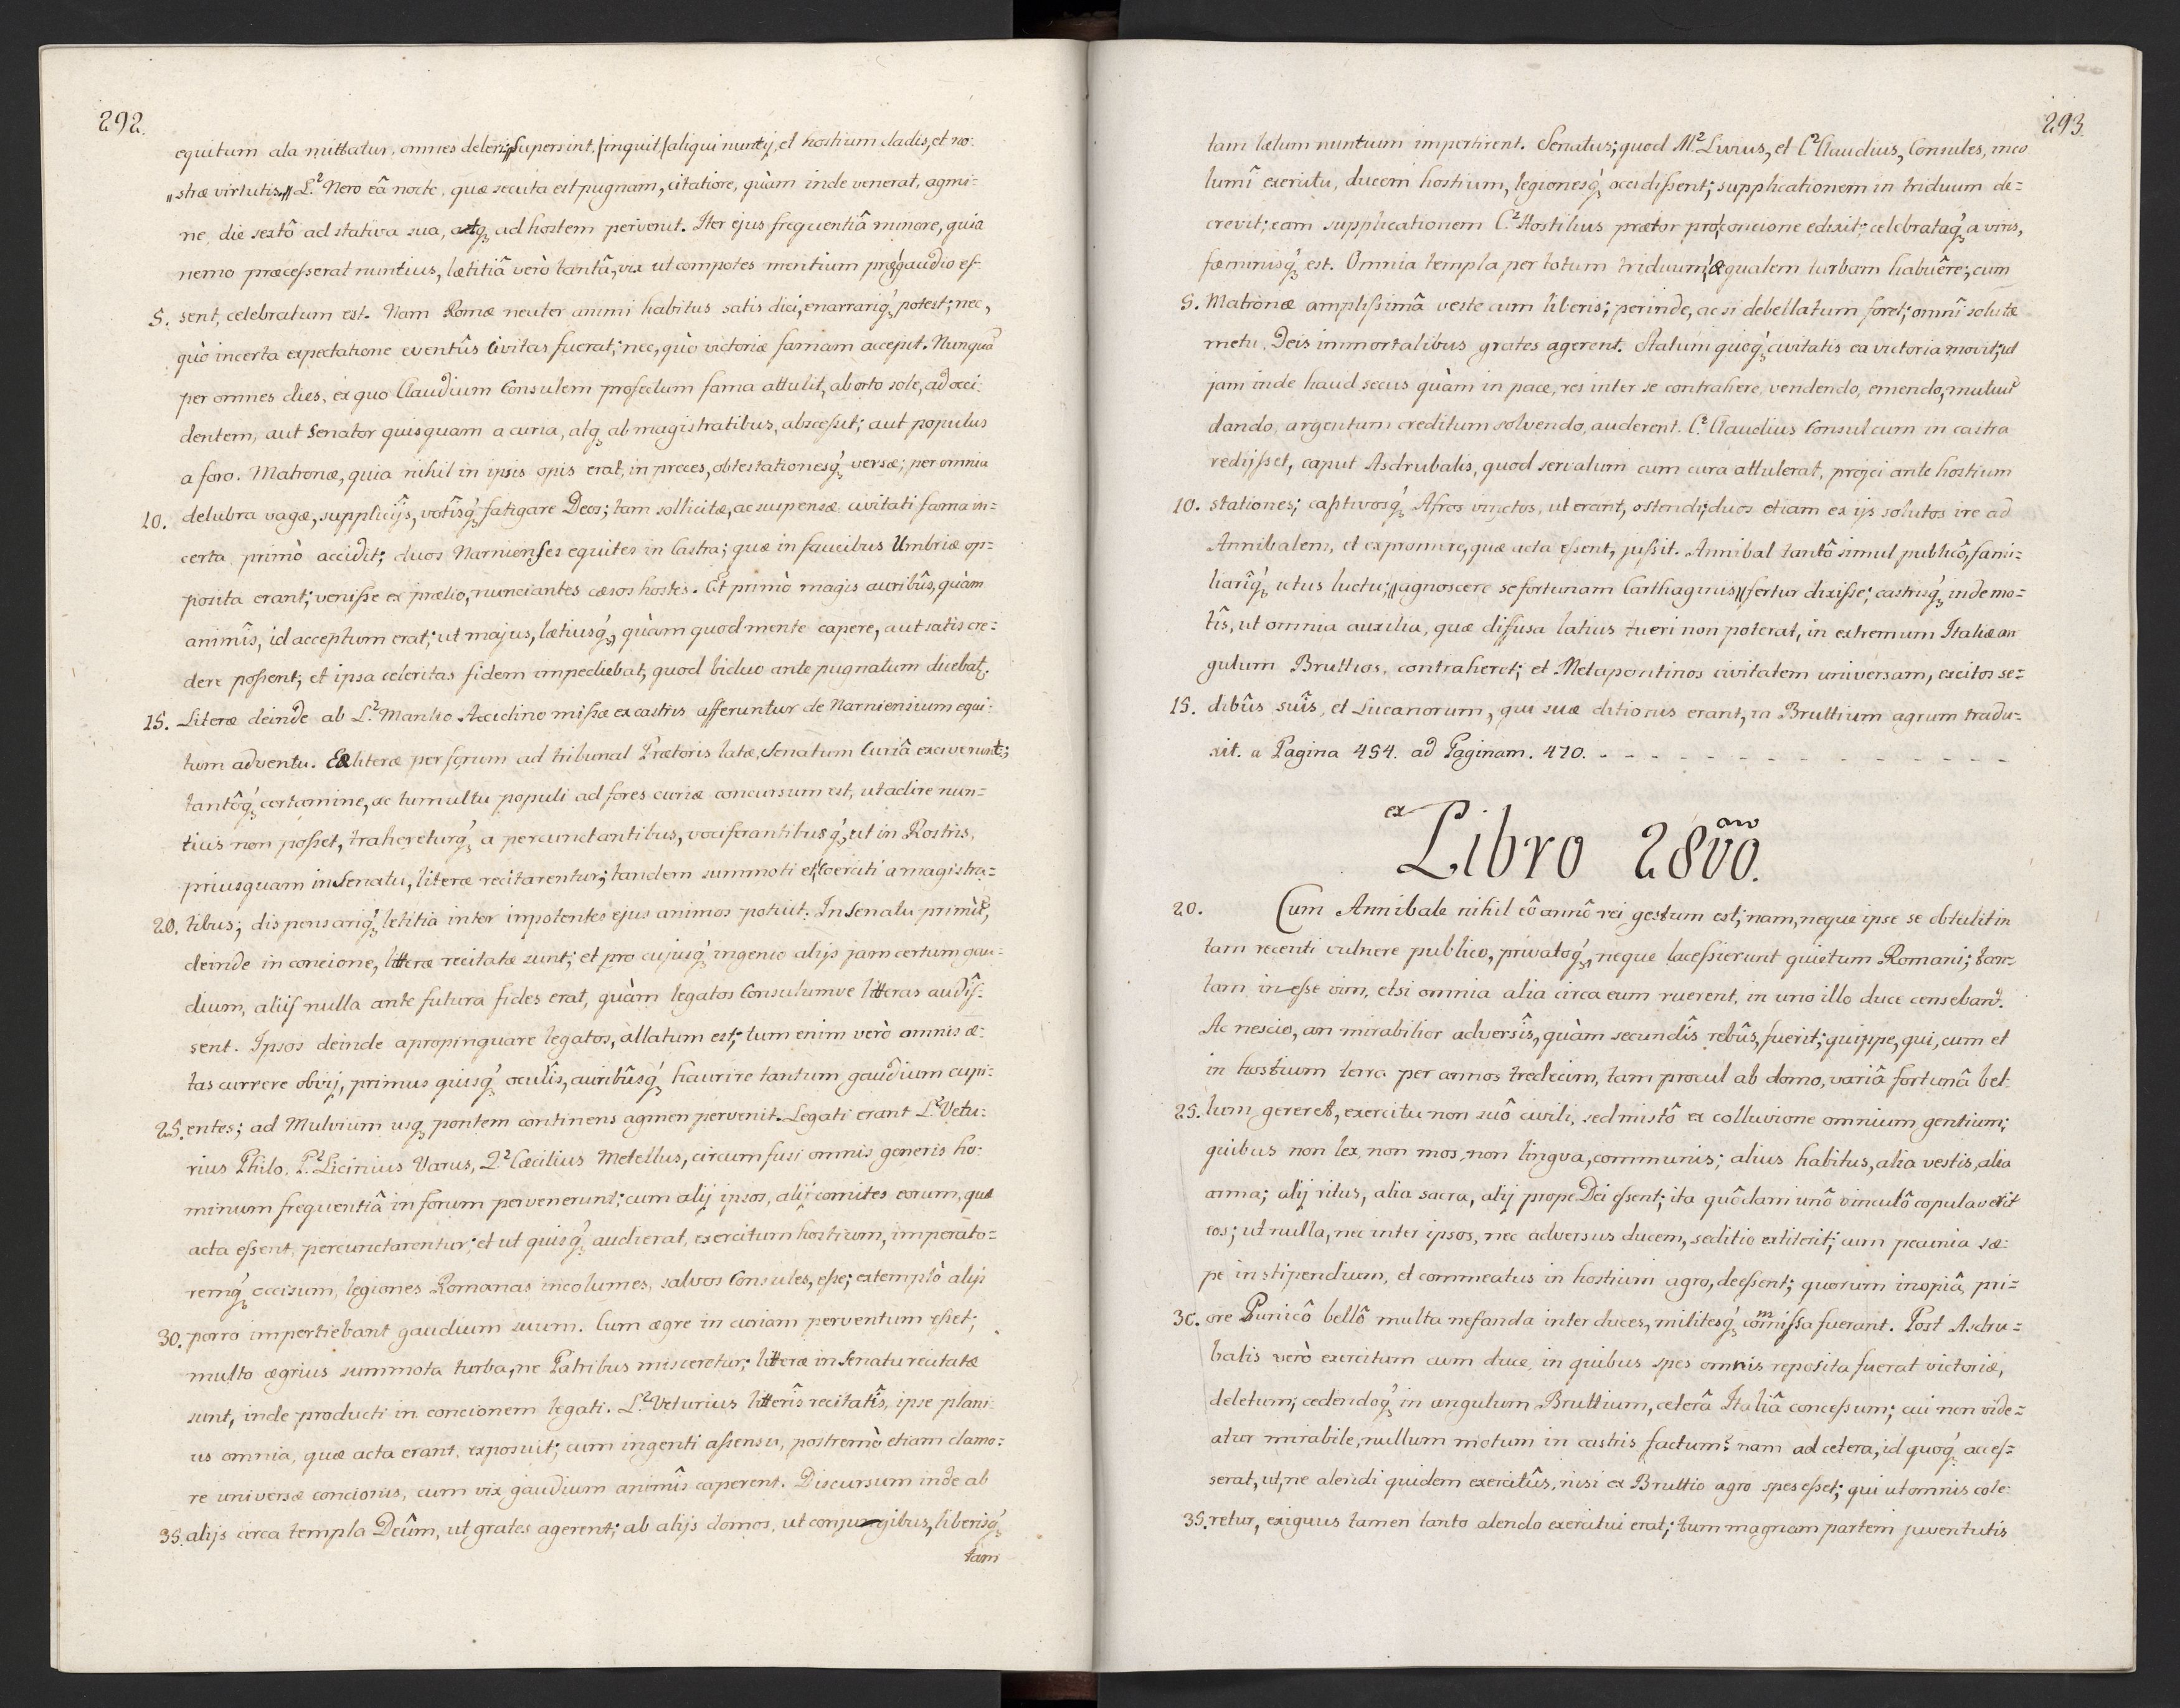 292.
equitum ala mittatur, omnes deleri; „Supersint, /inquit/ aliqui nuntij, et hostium cladis, et no:
„stræ virtutis„ L.² Nero eâ nocte, quæ secuta est pugnam, citatiore, quàm inde venerat, agmi=
ne, die sextô ad stativa sua, atq₃ ad hostem pervenit. Iter ejus frequentiâ minore, quia
nemo præcesserat nuntius, lætitiâ verò tantâ, vix ut compotes mentium præ gaudio es=
5. sent, celebratum est. Nam Romæ neuter animi habitus satis dici, enarrariq́₃ potest; nec,
quò incerta expectatione eventûs Civitas fuerat; nec, quò victoriæ famam accepit. Nunquã
per omnes dies, ex quo Claudium Consulem profectum fama attulit, ab orto sole, ad occi:
dentem, aut Senator quisquam a curia, atq₃ ab magistratibus, abscessit; aut populus
a foro. Matronæ, quia nihil in ipsis opis erat, in preces, obtestationesq́₃ versæ; per omnia
10. delubra vagæ, supplicijs, votîsq́₃ fatigare Deos; tam sollicitæ, ac suspensæ civitati fama in=
certa primò accidit; duos Narnienses equites in Castra; quæ in faucibus Umbriæ op=
posita erant; venisse ex prælio, nunciantes cæsos hostes. Et primò magis auribûs, quàm
animîs, id acceptum erat; ut majus, lætiusq́₃, quàm quod mente capere, aut satis cre=
dere possent; et ipsa celeritas fidem impediebat, quod biduo ante pugnatum dicebat.
15. Literæ deinde ab L.² Manlio Accidino missæ ex castris afferuntur de Narniensium equi:
tum adventu. Eæ literæ per forum ad tribunal Prætoris latæ, Senatum Curiâ exciverunt;
tantôq́₃ certamine, ac tumultu populi ad fores curiæ concursum est, ut adire nun=
tius non posset, traheretúrq́₃ a percunctantibus, vociferantibusq́₃, ut in Rostris,
priusquam in Senatu, literæ recitarentur; tandem summoti et coërciti a magistra=
20. tibus; dispensariq́₃ letitia inter inpotentes ejus animos potuit. In Senatu primùm,
deinde in concione, litteræ recitatæ sunt; et pro cujusq́₃ ingenio alijs jam certum gau=
dium, aliis nulla ante futura fides erat, quàm legatos Consulumve litteras audîs=
sent. Ipsos deinde apropinquare legatos, allatum est; tum enim verò omnis æ=
tas currere obvij, primus quisq́₃ oculîs, auribûsq́₃ haurire tantum gaudium cupi=
25. entes; ad Mulvium usq₃ pontem continens agmen pervenit. Legati erant L.² Vetu:
rius Philo, P.² Licinius Varus, Q.² Cæcilius Metellus, circumfusi omnis generis ho:
minum frequentiâ in forum pervenerunt; cum alij ipsos, alij comites eorum, quæ
acta essent, percunctarentur; et ut quisq́₃ audierat, exercitum hostium, imperato=
remq́₃ occisum, legiones Romanas incolumes, salvos Consules, esse; extemplò alijs
30. porro impertiebant gaudium suum. Cum ægre in curiam perventum esset;
multo ægrius summota turba, ne Patribus misceretur; litteræ in Senatu recitatæ
sunt, inde producti in concionem legati. L.² Veturius litterîs recitatîs, ipse plani:
us omnia, quæ acta erant, exposuit; cum ingenti assensu, postremò etiam clamo=
re universæ concionis, cum vix gaudium animîs caperent. Discursum inde ab
35. alijs circa templa Deûm, ut grates agerent; ab alijs domos, ut conjugibus, liberisq́₃
tam
293.
tam lætum nuntium impertirent. Senatus; quod M.² Livius, et C.² Claudius, Consules, inco
lumî exercitu, ducem hostium, legionesq́₃ occidissent; supplicationem in triduum de=
crevit; eam supplicationem C.² Hostilius prætor pro concione edixit; celebrataq́₃ a viris,
fæminisq́₃ est. Omnia templa per totum triduum æqualem turbam habuêre; cum
5. Matronæ amplissimâ veste cum liberis; perinde, ac si debellatum foret; omnî solutæ
metu, Deis immortalibus grates agerent. Statum quoq́₃ civitatis ea victoria movit; ut
jam inde haud secus quàm in pace, res inter se contrahere, vendendo, emendo, mutuũ
dando, argentum creditum solvendo, auderent. C.² Claudius Consul cum in castra
redijsset, caput Asdrubalis, quod servatum cum cura attulerat, projici ante hostium
10. stationes; captivosq́₃ Afros vinctos, ut erant, ostendi; duos etiam ex ijs solutos ire ad
Annibalem, et expromere, quæ acta essent, jussit. Annibal tantô simul publicô, fami=
liarîq́₃ ictus luctu; „agnoscere se fortunam Carthaginis„ fertur dixisse; castrisq́₃ inde mo=
tîs, ut omnia auxilia, quæ diffusa latius tueri non poterat, in extremum Italiæ an
gulum Bruttios, contraheret; et Metapontinos civitatem universam, excitos se=
15. dibûs suîs, et Lucanorum, qui suæ ditionis erant, in Bruttium agrum tradu=
xit. a Pagina 454. ad Paginam. 470. - - - - - - - - - - - - - - - - -
ex
Libro 28vo.
20. Cum Annibale nihil eô annô rei gestum est; nam, neque ipse se obtulit in
tam recenti vulnere publico, privatoq́₃, neque lacessierunt quietum Romani; tan=
tam inesse vim, etsi omnia alia circa eum ruerent, in uno illo duce censebant.
Ac nescio, an mirabilior adversîs, quàm secundîs rebûs, fuerit; quippe, qui, cum et
in hostium terra per annos tredecim, tam procul ab domo, variâ fortunâ bel:
25. lum gereret, exercitu non suô civili, sed mistô ex colluvione omnium gentium;
quibus non lex, non mos, non lingva, communis; alius habitus, alia vestis, alia
arma; alij ritus, alia sacra, alij prope Dei essent; ita quôdam unô vinculô copulaverit
eos; ut nulla, nec inter ipsos, nec adversus ducem, seditio extiterit; cum pecunia sæ:
pe in stipendium, et commeatus in hostium agro, deessent; quorum inopiâ, pri=
30. ore Punicô bellô multa nefanda inter duces, militesq́₃ commissa fuerant. Post Asdru=
balis verò exercitum cum duce, in quibus spes omnis reposita fuerat victoriæ,
deletum; cedendoq́₃ in angulum Bruttium, ceterâ Italiâ concessum; cui non vide=
atur mirabile, nullum motum in castris factum? nam ad cetera, id quoq́₃ acces=
serat, ut, ne alendi quidem exercitûs, nisi ex Bruttio agro spes esset; qui ut omnis cole:
35. retur, exiguus tamen tanto alendo exercitui erat; tum magnam partem juventutis